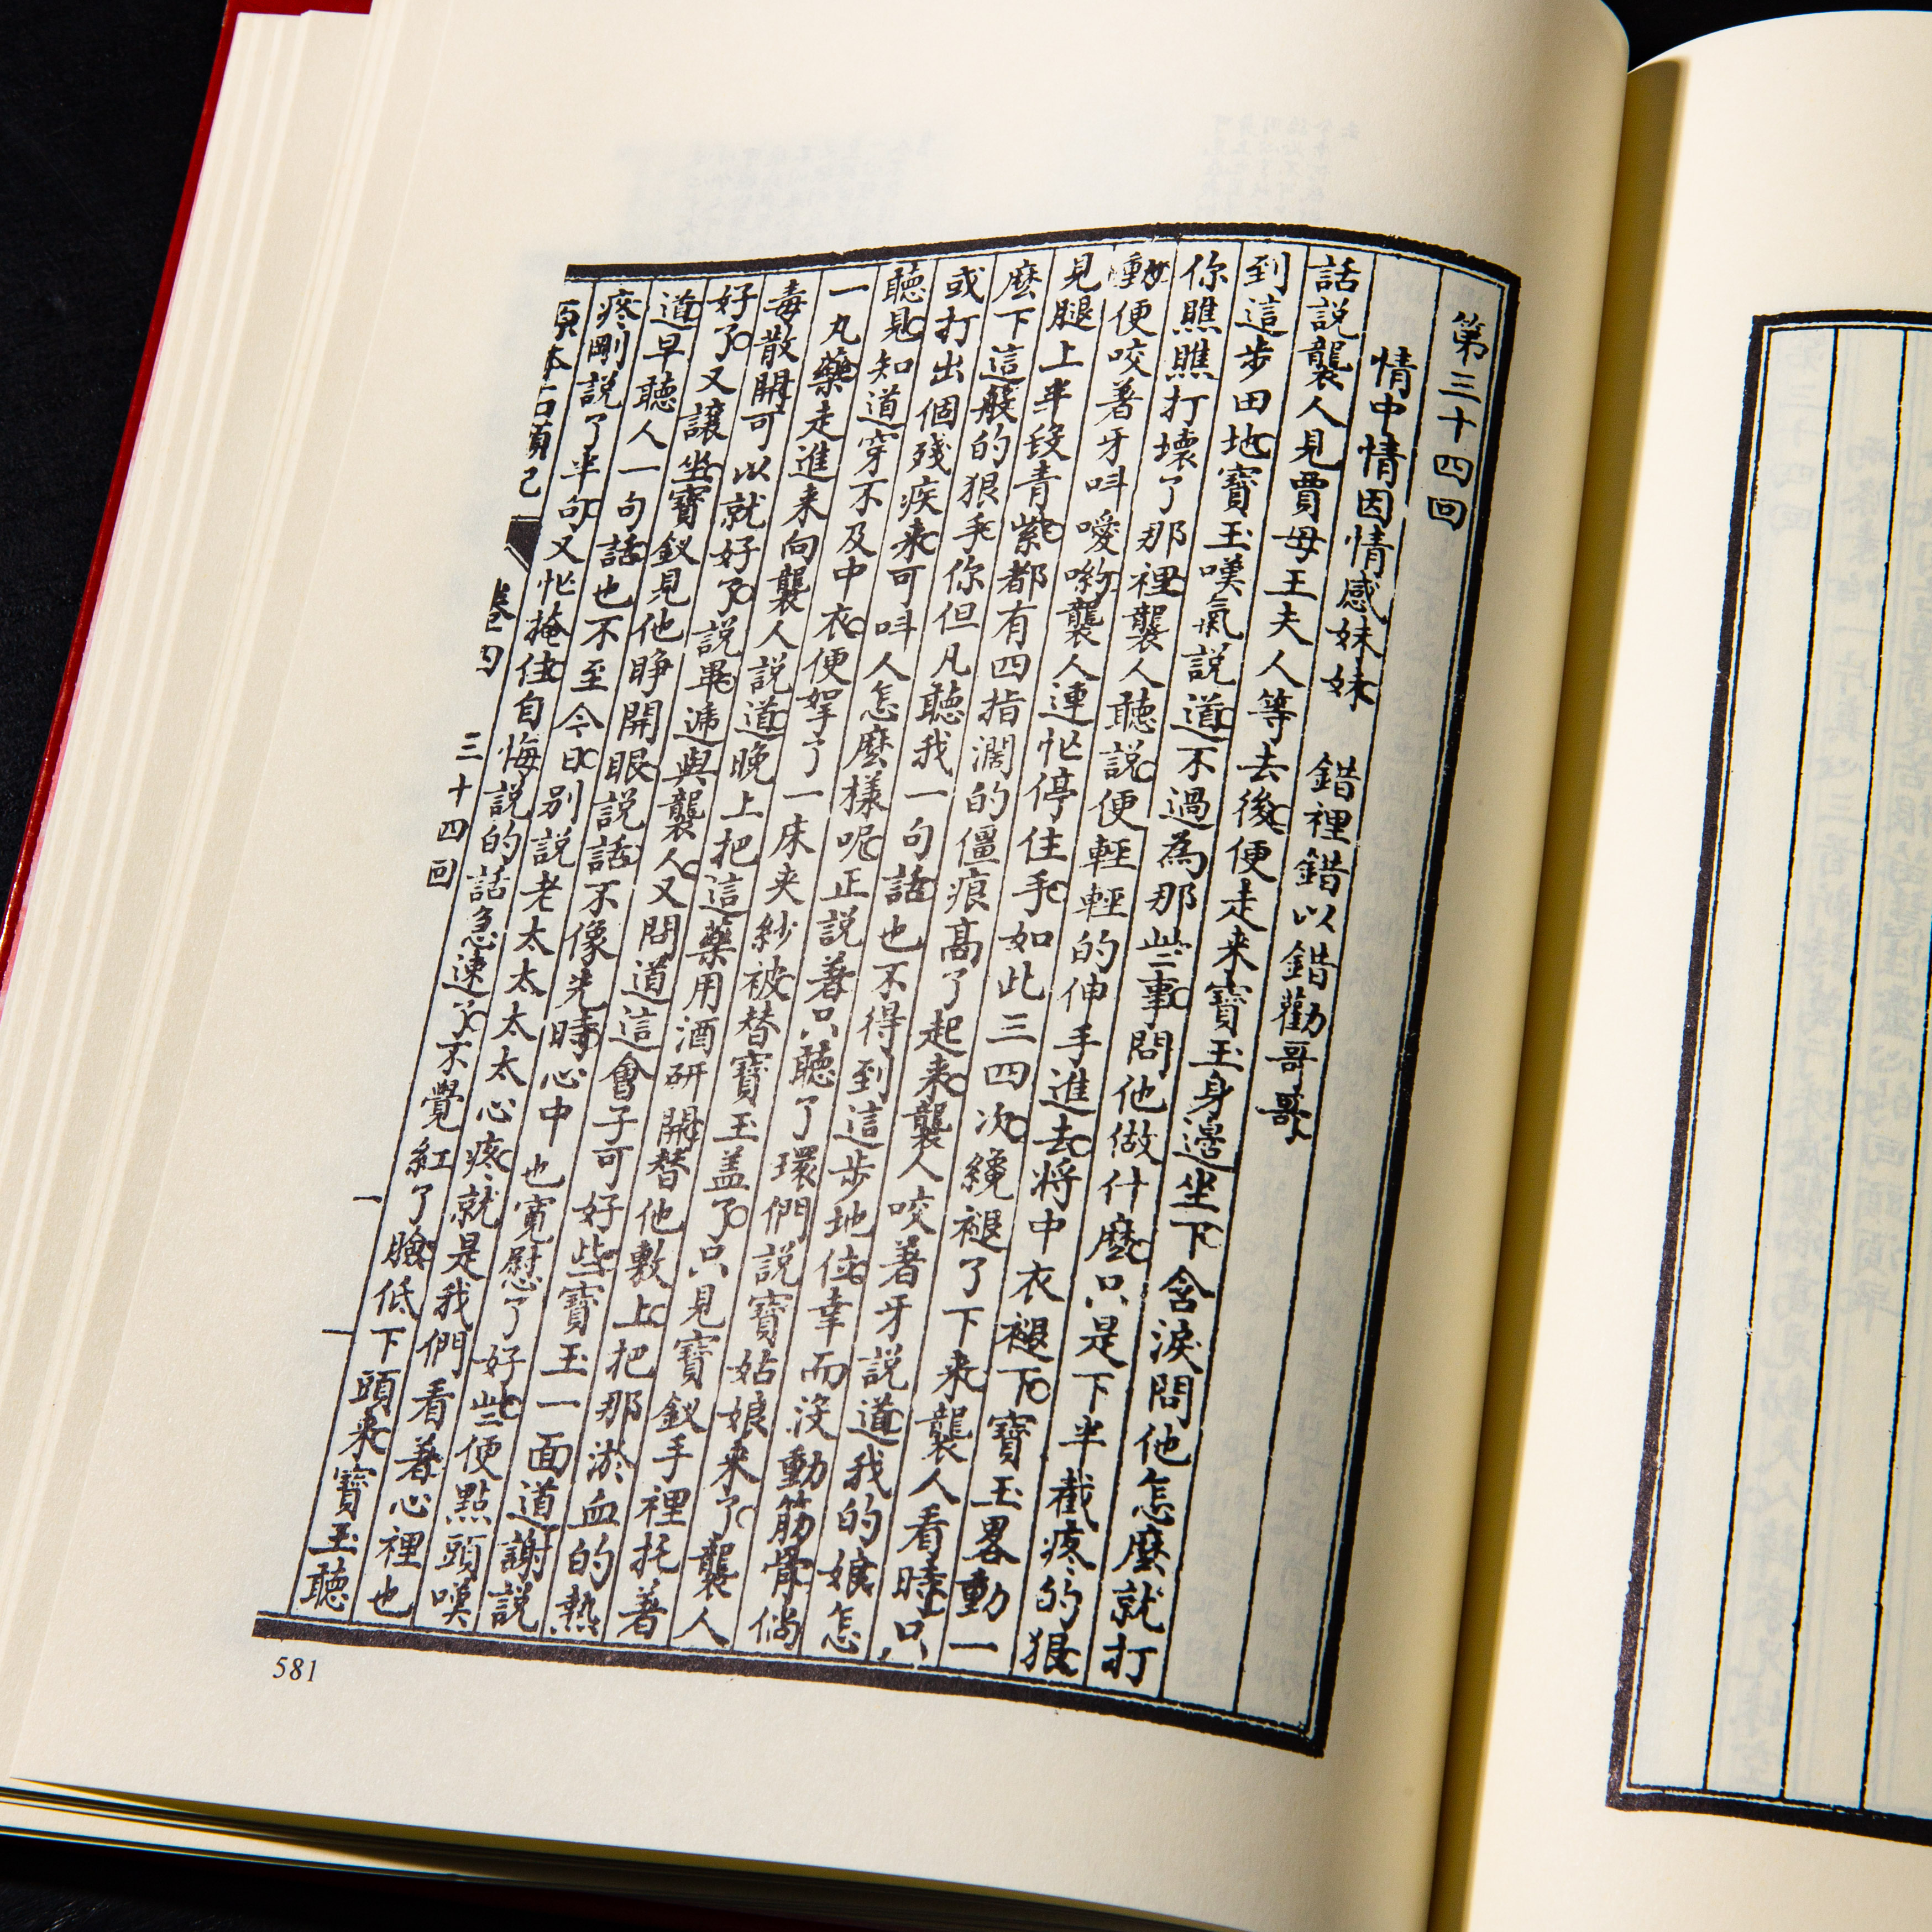 第三十四回
情中情因情感妹妹　錯裡錯以錯勸哥哥
話説襲人見賈母王夫人等去後便走来寳玉身邊坐下含淚問他怎麼就打
到這步田地寳玉嘆氣説道不過為那些事問他做什麼只是下半截疼的狠
你瞧瞧打壊了那裡襲人聽説便輕輕的伸手進去將中衣褪下寳玉畧動一
動便咬著牙呌噯喲襲人連忙停住手如此三四次纔褪了下来襲人看時只
見腿上半段青紫都有四指濶的僵痕高了起来襲人咬著牙説道我的娘怎
麼下這般的狠手你但凡聽我一句話也不得到這步地位幸而沒動筋骨倘
或打出個殘疾来可呌人怎麼樣呢正説著只聽了環們説寳姑娘来了襲人
聽見知道穿不及中衣便拏了一床夾紗被替寳玉盖了只見寳釵手裡托著
一丸藥走進来向襲人説道晚上把這藥用酒研開替他敷上把那淤血的熱
毒散開可以就好了説畢遞與襲人又問道這會子可好些寳玉一面道謝説
好了又讓坐寳釵見他睜開眼説話不像先時心中也寛慰了好些便點頭嘆
道早聽人一句話也不至今日别説老太太太太心疼就是我們看著心裡也
疼剛説了半句又忙掩住自悔説的話急速了不覺紅了臉低下頭来寳玉聽
原本石頭記　卷四　三十四回　一
581